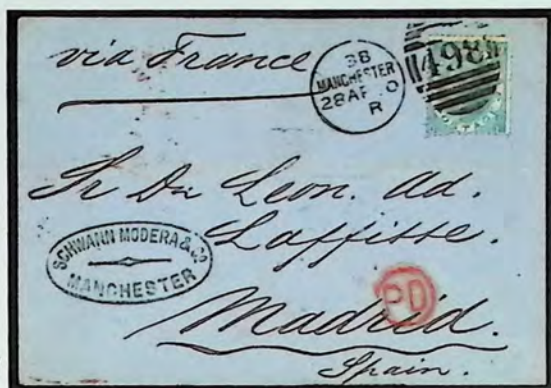 via France
3B
MANCHESTER
28 AP 0
R
498
POSTAGE
Sr Dn Leon. Ad.
Laffitte.
SCHWANN MODERA & Co
MANCHESTER
PD
Madrid.
Spain.